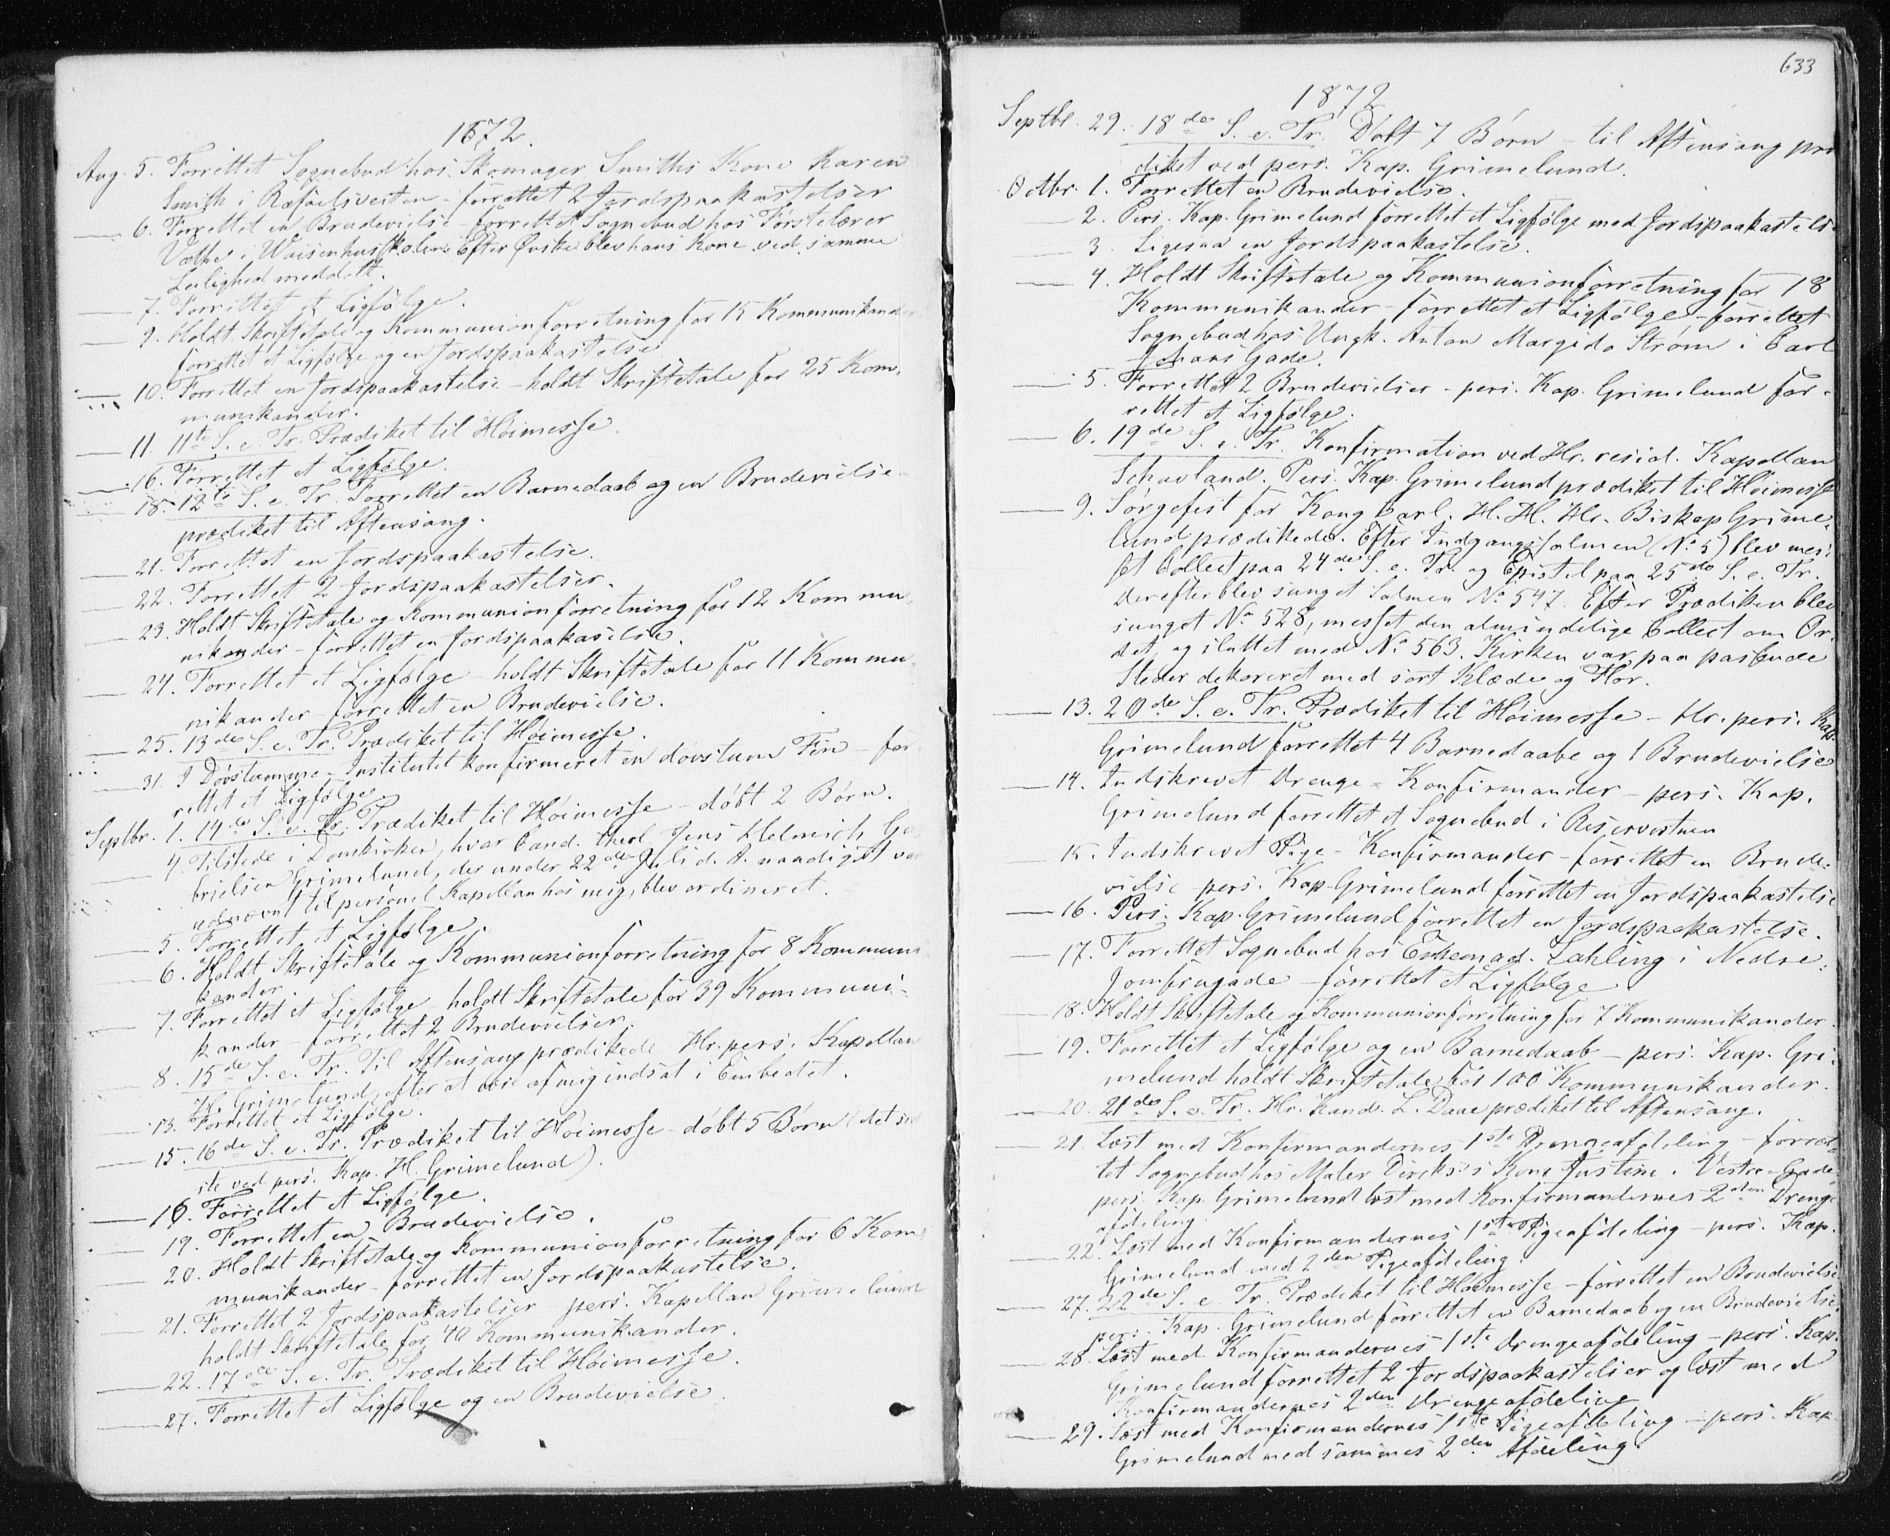 1872.
Aug. 5. Forrettet Sognebud hos Skomager Smiths Kone Karen
Smith i - forrettet 2 Jordspaakastelser
— 6. Forrettet en Brudevielse - forrettet Sognebud hos Førstelærer
i Waisenhusskolen. Efter Ønske blev hans Kone ved samme
Leilighed meddelt.
— 7. Forrettet et Ligfølge.
— 9. Holdt Skriftetale og Kommunionforretning for 15 Kommunikander
forrettet et Ligfølge og en Jordspaakastelse
— 10. Forrettet en Jordspaakastelse - holdt Skriftetale for 25 Kom-
munikander.
— 11. 11te S. e. Tr. Prædiket til Høimesse.
— 16. Forrettet et Ligfølge.
— 18. 12te S. e. Tr. Forrettet en Barnedaab og en Brudevielse
prædiket til Aftensang.
— 21. Forrettet en Jordspaakastelse.
— 22. Forrettet 2 Jordspaakastelser.
— 23. Holdt Skriftetale og Kommunionforretning for 12 Kommu-
nikander - forrettet en Jordspaakaselse.
— 24. Forrettet et Ligfølge - holdt Skriftetale for 11 Kommu-
nikander - forrettet en Brudevielse.
— 25. 13de S. e. Tr. Prædiket til Høimesse.
— 31. I Døvstumme-Institutet konfirmeret en døvstum Fin - for-
rettet et Ligfølge.
Septbr. 1. 14de S. e. Tr. Prædiket til Høimesse - døbt 2 Børn.
— 4. Tilstede i Domkirken, hvor Cand. theol Jens Helmich Ga-
brielsen Grimelund, der under 22de Juli d. A. naadigst var
udnævnt til personel Kapellan hos mig, blev ordineret.
— 5. Forrettet et Ligfølge.
— 6. Holdt Skriftetale og Kommunionforretning for 8 Kommuni-
kander
— 7. Forrettet et Ligfølge - holdt Skriftetale for 39 Kommuni-
kander - forrettet 2 Brudevielser.
— 8. 15de S. e. Tr. Til Aftensang prædikede Hr. pers. Kapellan
H. Grimelund, efter at være af mig indsat i Embedet.
— 13. Forrettet et Ligfølge.
— 15. 16de S. e. Tr. Prædiket til Høimesse - døbt 5 Børn (det sid-
ste ved pers. Kap. H. Grimelund).
— 16. Forrettet et Ligfølge.
— 19. Forrettet en Brudevielse.
— 20. Holdt Skriftetale og Kommunionforretning for 6 Kom-
munikander - forrettet en Jordspaakastelse.
— 21. Forrettet 2 Jordspaakastelser - pers. Kapellan Grimelund
holdt Skriftetale for 40 Kommunikander.
— 22. 17de S. e. Tr. Prædiket til Høimesse.
— 27. Forrettet et Ligfølge og en Brudevielse.
633
1872
Septbr. 29. 18de S. e. Tr. Døbt 7 Børn - til Aftensang præ-
diket ved pers. Kap. Grimelund.
Octbr. 1. Forrettet en Brudevielse.
— 2. Pers. Kap. Grimelund forrettet et Ligfølge med Jordspaakastelse
— 3. Ligesaa en Jordspaakastelse.
— 4. Holdt Skriftetale og Kommunionforretning for 18
Kommunikander - forrettet et Ligfølge - forrettet
Sognebud hos Ungk. Anton Strøm i Carl
Johans Gade.
— 5. Forrettet 2 Brudevielser - pers. Kap. Grimelund for-
rettet et Ligfølge.
— 6. 19de S. e. Tr. Konfirmation ved Hr. resid. Kapellan
Schavland. Pers. Kap. Grimelund prædiket til Høimesse
— 9. Sørgefest for Kong Carl. H. H. Hr. Biskop Grime-
lund prædikede. Efter Indgangspsalmen (No 5) blev mes-
set Collect paa 24de S. e. Tr. og Epistel paa 25de S. e. Tr.
Derefter blev sunget Salmen No 547. Efter Prædiken blev
sunget No 528, messet den almindelige Collect om Or-
det, og sluttet med No 563. Kirken var paa passende
Steder dekoreret med sort Klæde og Flor.
— 13. 20de S. e. Tr. Prædiket til Høimesse - Hr. pers. Kap.
Grimelund forrettet 4 Barnedaabe og 1 Brudevielse
— 14. Indskrevet Drenge-Konfirmander - pers. Kap.
Grimelund forrettet et Sognebud i
— 15. Indskrevet Pige-Konfirmander - forrettet en Brude-
vielse - pers. Kap. Grimelund forrettet en Jordspaakastelse
— 16. Pers. Kap. Grimelund forrettet en Jordspaakastelse.
— 17. Forrettet Sognebud hos Enkemad. Zahling i Nedre
Jomfrugade - forrettet et Ligfølge
— 18. Holdt Skriftetale og Kommunionforretning for 7 Kommunikander.
— 19. Forrettet et Ligfølge og en Barnedaab - pers. Kap. Gri-
melund holdt Skriftetale for 100 Kommunikander.
— 20. 21de S. e. Tr. Hr. Kand. L. Daae prædiket til Aftensang.
— 21. Læst med Konfirmandernes 1ste Drengeafdeling - forret-
tet Sognebud hos Maler Kone Justine i Vestre Gade
pers. Kap. Grimelund læst med Konfirmandernes 2den Drenge-
afdeling.
— 22. Læst med Konfirmandernes 1ste Pigeafdeling - pers. Kap.
Grimelund med 2den Pigeafdeling.
— 27. 22de S. e. Tr. Prædiket til Høimesse - forrettet en Brudevielse
pers. Kap. Grimelund forrettet en Barnedaab og en Brudevielse.
— 28. Læst med Konfirmandernes 1ste Drengeafdeling - pers. Kap.
Grimelund forrettet 2 Jordspaakastelser og læst med
Konfirmandernes 2den Drengeafdeling
— 29. Læst med Konfirmandernes 1ste Pigeafdeling - pers. Kap.
Grimelund med sammes 2den Afdeling.